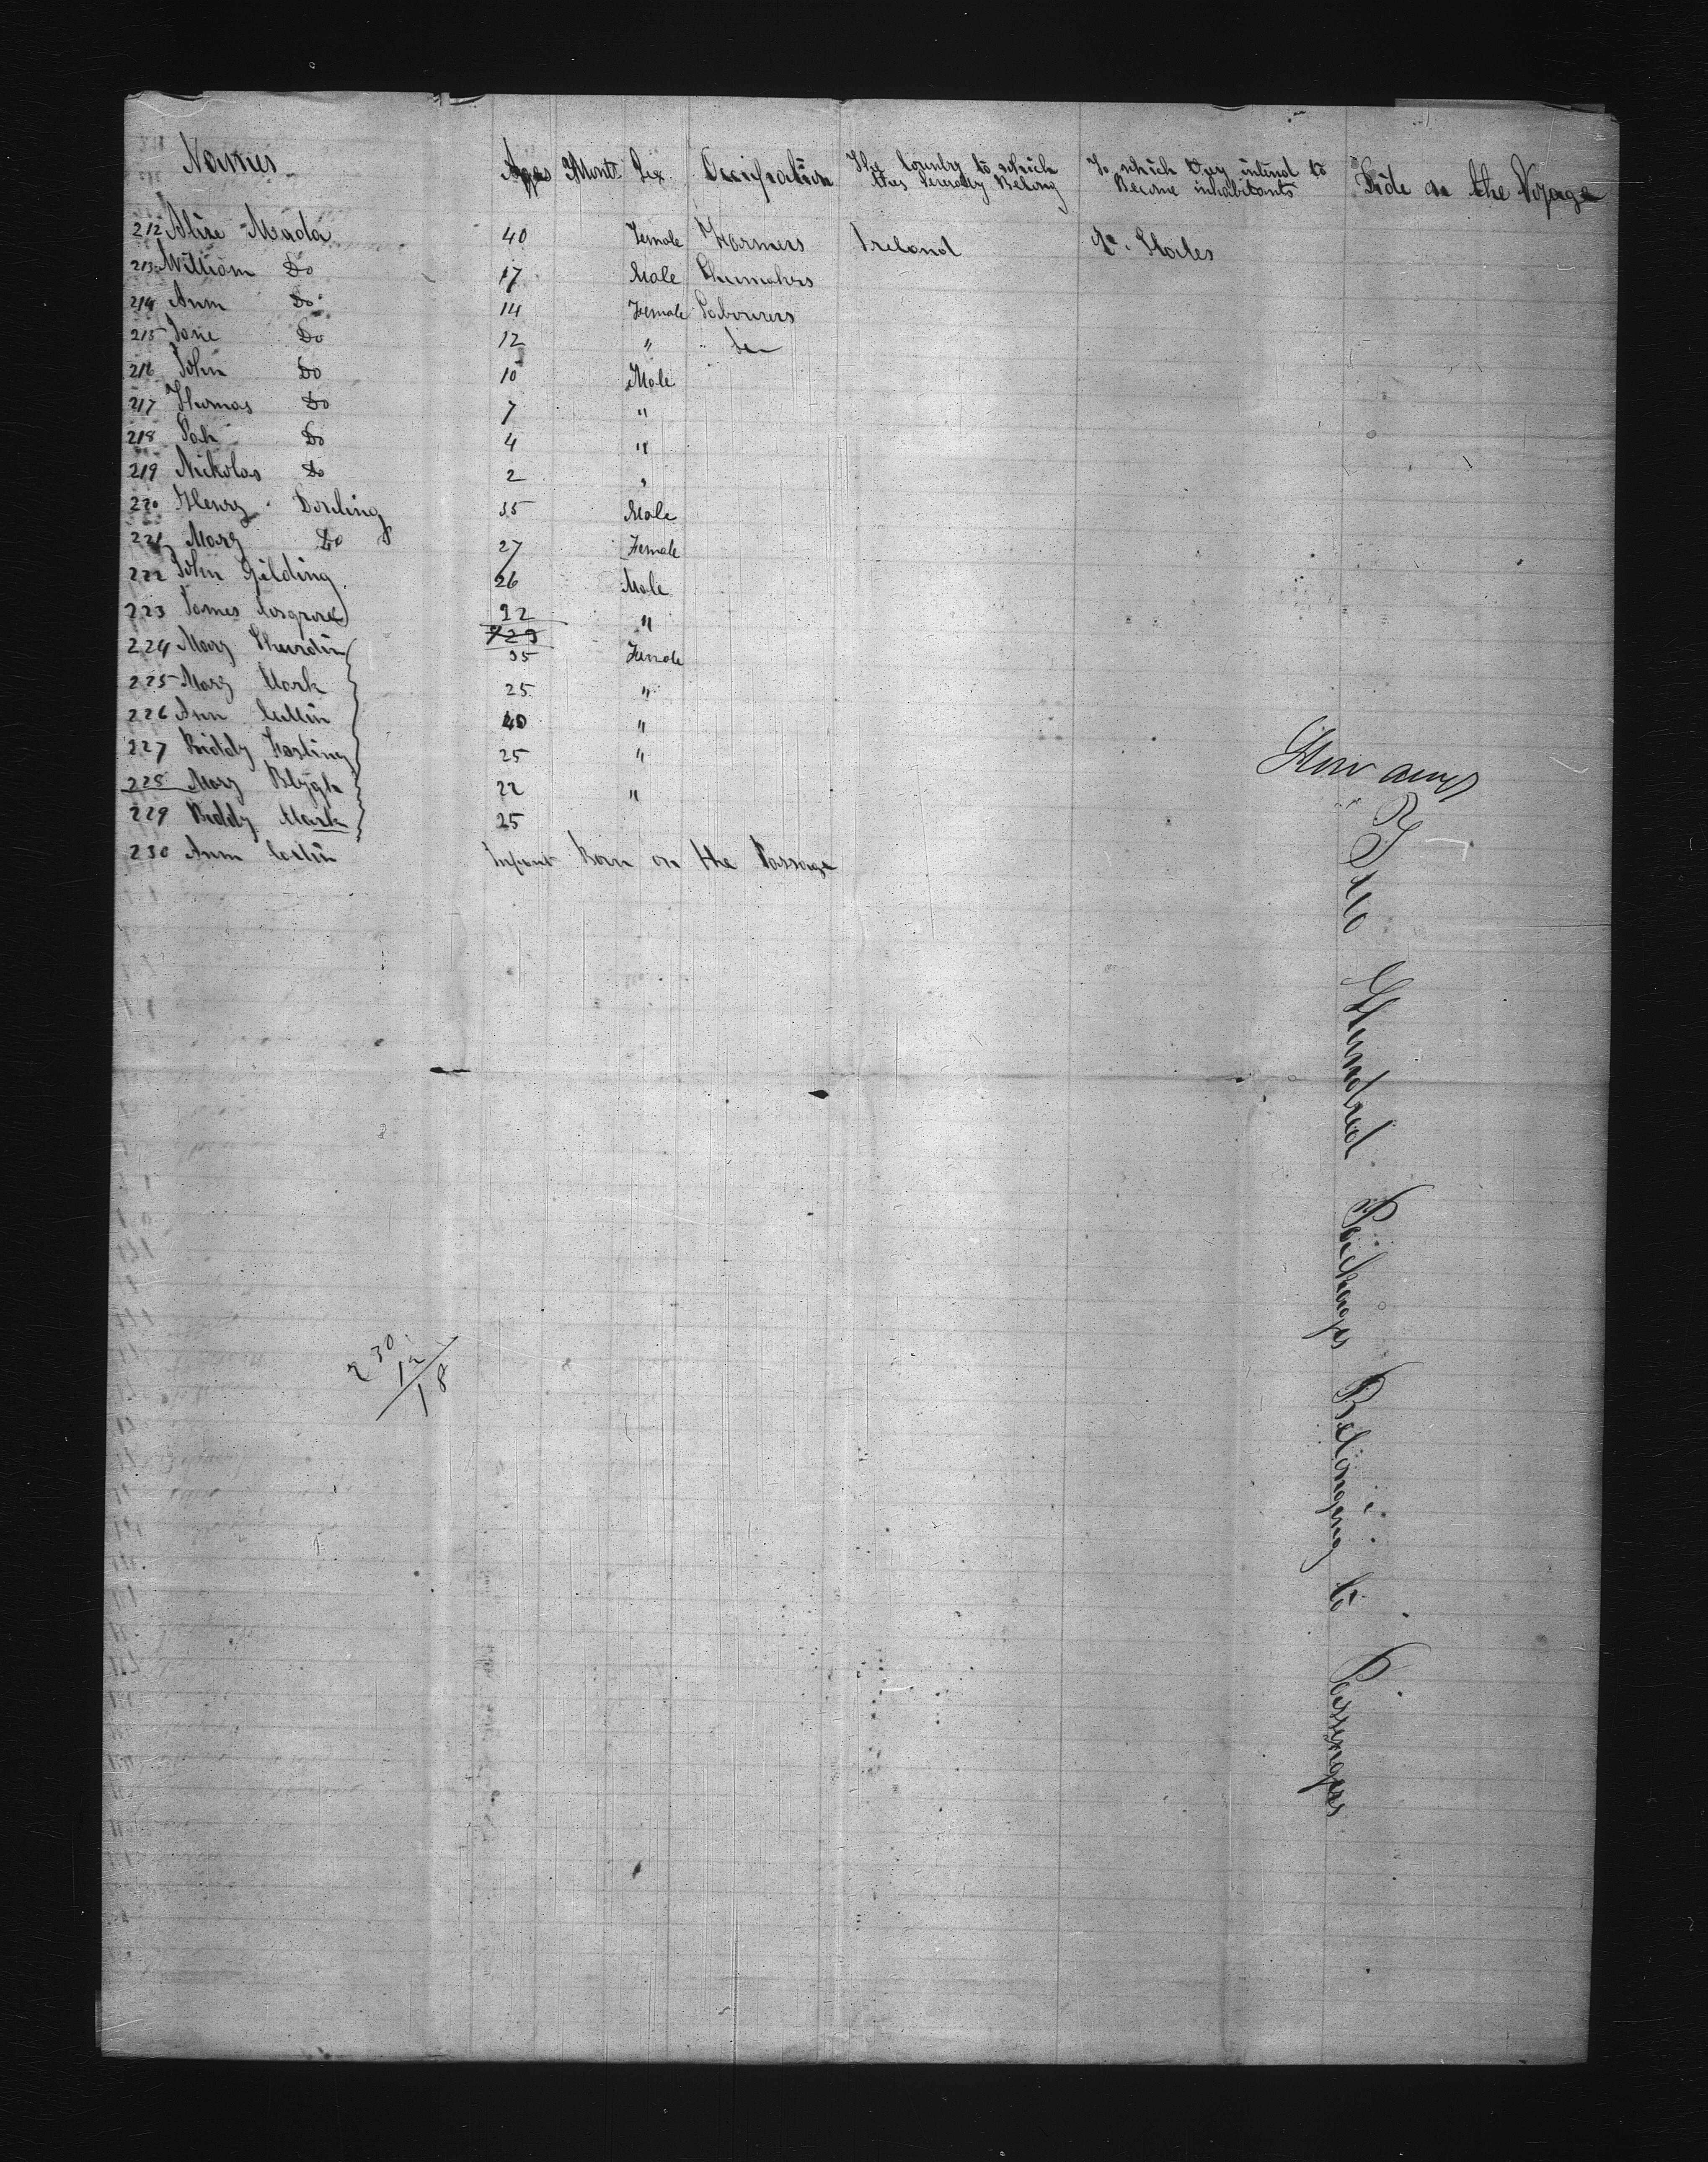 Names Ages Mont Sex Occupation The Country to which they severally Belong To which they intend to Become inhabitants Side on the Voyage
212 Alice Meada 40 Female Farmers Ireland U. States
213 William Do 17 Male Shumakers
214 Ann Do 14 Female Labourers
215 Jane Do 12 "
216 John Do 10 Male
217 Thomas Do 7 "
218 Pat Do 4 "
219 Nickolas Do 2 "
220 Henry Dowling 35 Male
221 Mary Do 27 Female
222 John Gilding 26 Male
223 James Cosgrove 22 "
729
224 Mary 35 Female
225 Mary Clark 25 "
226 Ann Cullin 40 "
227 Biddy Hasting 25 "
228 Mary 22 "
229 Biddy Clark 25
230 Ann Costin Infant Born on the Passage
Two Hundred Packages Belonging to Passengers
230
12
18